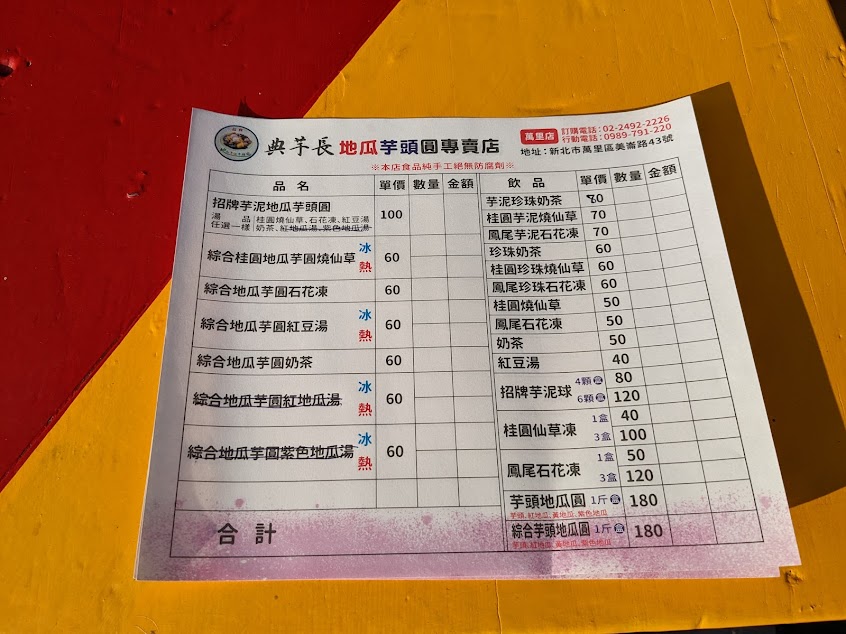 典芋長地瓜芋頭圓專賣店
萬里店
訂購電話:02-2492-2226
行動電話:0989-791-220
地址:新北市萬里區美崙路43號
※本店食品純手工絕無防腐劑※
品名 單價 數量 金額
招牌芋泥地瓜芋頭圓 100
湯品 桂圓燒仙草、石花凍、紅豆湯
任選一樣 奶茶、紅地瓜湯、紫色地瓜湯
綜合桂圓地瓜芋圓燒仙草 冰 熱 60
綜合地瓜芋圓石花凍 60
綜合地瓜芋圓紅豆湯 冰 熱 60
綜合地瓜芋圓奶茶 60
綜合地瓜芋圓紅地瓜湯 冰 熱 60
綜合地瓜芋圓紫色地瓜湯 冰 熱 60
合計
飲品 單價 數量 金額
芋泥珍珠奶茶 80
桂圓芋泥燒仙草 70
鳳尾芋泥石花凍 70
珍珠奶茶 60
桂圓珍珠燒仙草 60
鳳尾珍珠石花凍 60
桂圓燒仙草 50
鳳尾石花凍 50
奶茶 50
紅豆湯 40
招牌芋泥球 4顆 80
6顆 120
桂圓仙草凍 1盒 40
3盒 100
鳳尾石花凍 1盒 50
3盒 120
芋頭地瓜圓 1斤 180
芋頭、紅地瓜、黃地瓜、紫色地瓜
綜合芋頭地瓜圓 1斤 180
芋頭、紅地瓜、黃地瓜、紫色地瓜